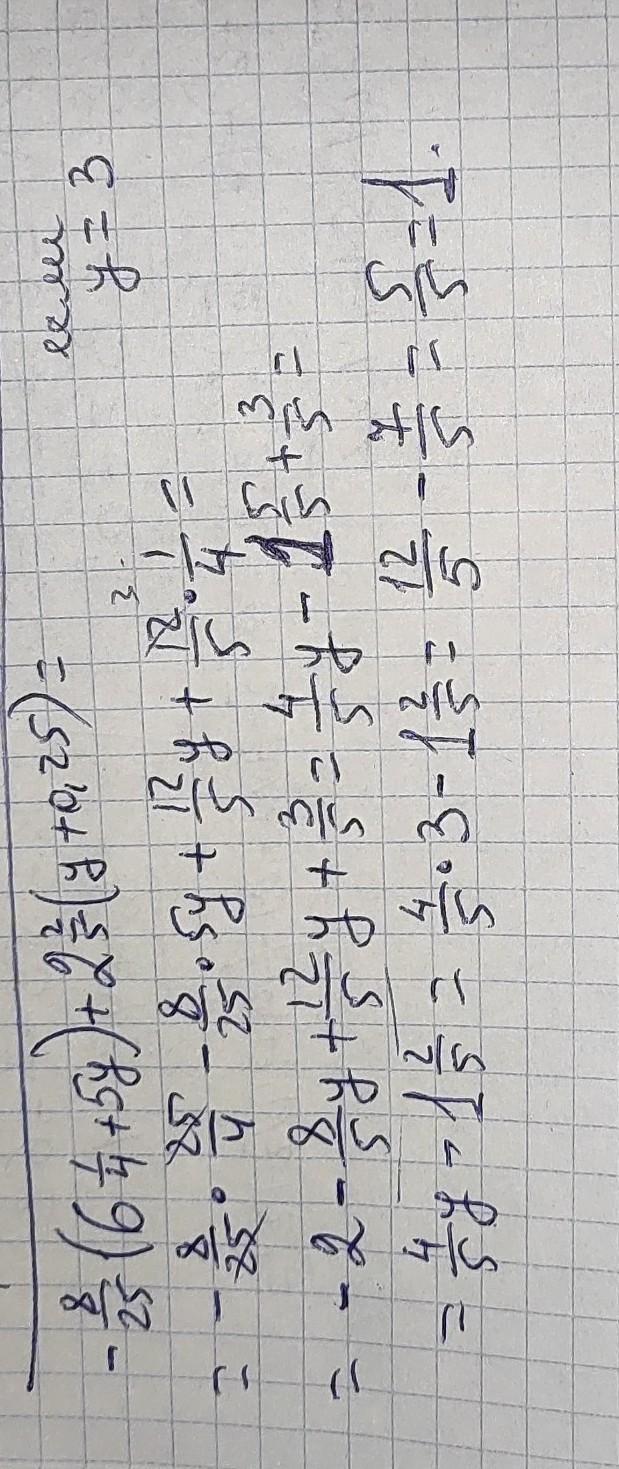 если
y = 3
-8/25 (6 1/4 + 5y) + 2 2/5 (y + 0,25) =
= - 8/25 · 25/4 - 8/25 · 5y + 12/5 y + 12/5 · 1/4 =
= - 2 - 8/5 y + 12/5 y + 3/5 = 4/5 y - 1 5/5 + 3/5 =
= 4/5 y - 1 2/5 = 4/5 · 3 - 1 2/5 = 12/5 - 7/5 = 5/5 = 1.